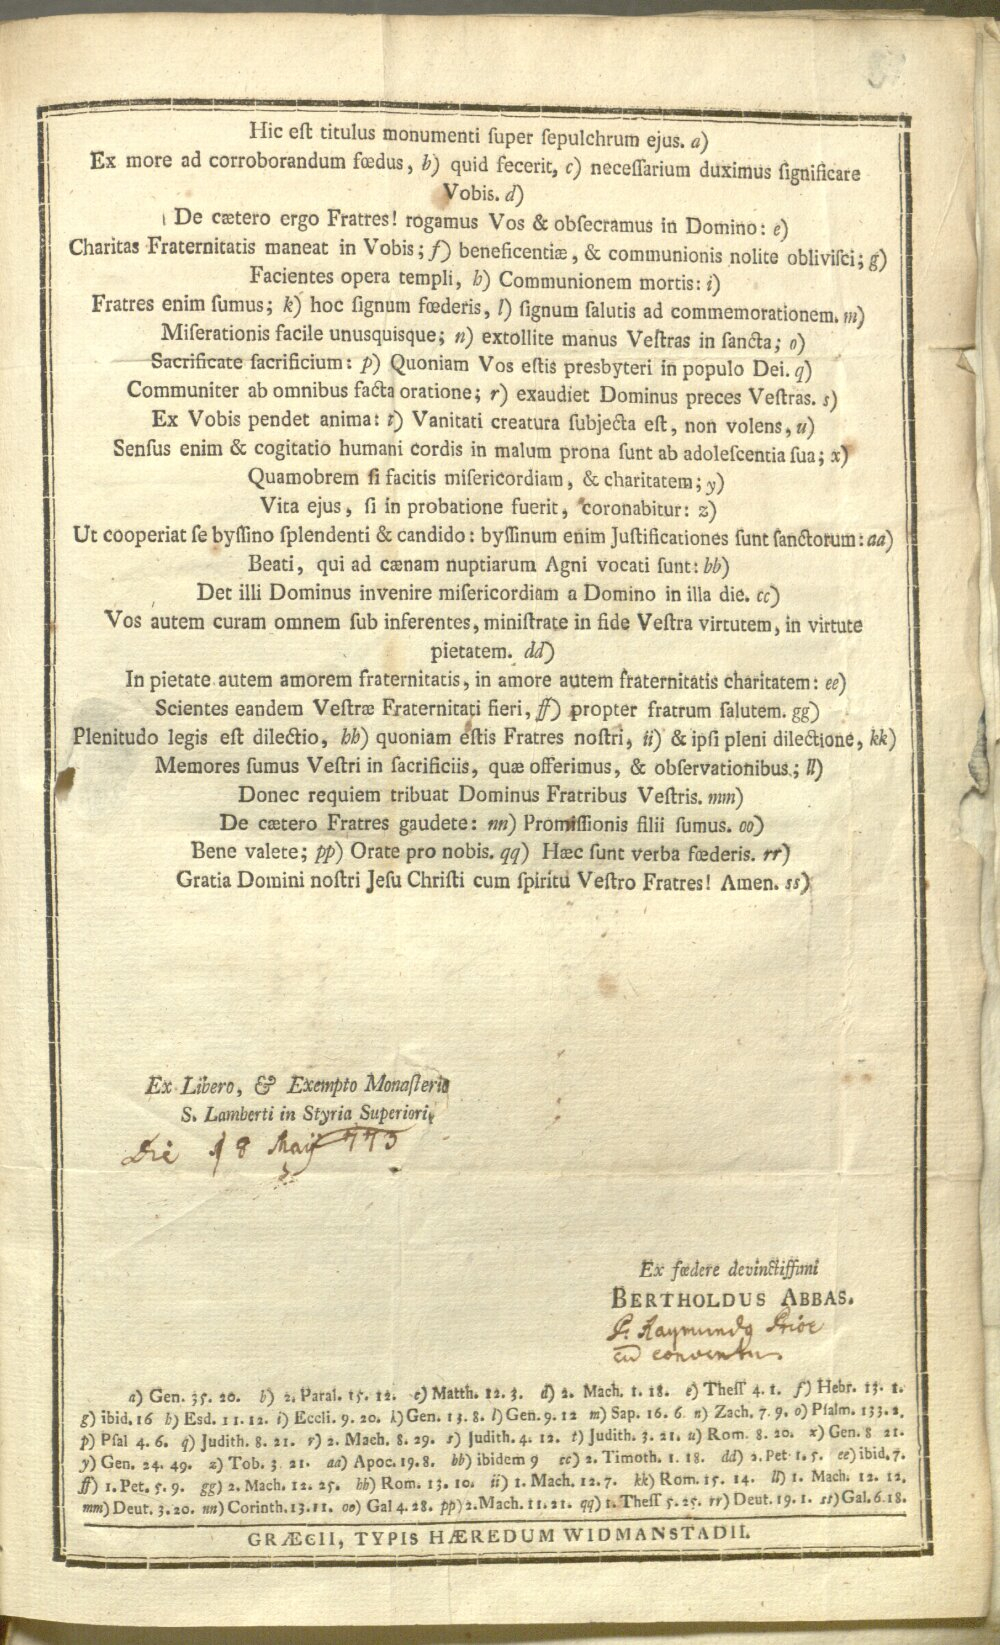 Hic eſt titulus monumenti ſuper ſepulchrum ejus. a)
Ex more ad corroborandum fœdus, b) quid fecerit, c) neceſſarium duximus ſignificare
Vobis. d)
De cætero ergo Fratres! rogamus Vos & obſecramus in Domino: e)
Charitas Fraternitatis maneat in Vobis; f) beneficentiæ, & communionis nolite obliviſci; g)
Facientes opera templi, h) Communionem mortis: i)
Fratres enim ſumus; k) hoc ſignum fœderis, l) ſignum ſalutis ad commemorationem. m)
Miſerationis facile unusquisque; n) extollite manus Veſtras in ſancta; o)
Sacrificate ſacrificium: p) Quoniam Vos eſtis presbyteri in populo Dei. q)
Communiter ab omnibus facta oratione; r) exaudiet Dominus preces Veſtras. s)
Ex Vobis pendet anima: t) Vanitati creatura ſubjecta eſt, non volens, u)
Senſus enim & cogitatio humani cordis in malum prona ſunt ab adoleſcentia ſua; x)
Quamobrem ſi facitis miſericordiam, & charitatem; y)
Vita ejus, ſi in probatione fuerit, coronabitur: z)
Ut cooperiat ſe byſſino ſplendenti & candido: byſſinum enim Juſtificationes ſunt ſanctorum: aa)
Beati, qui ad cænam nuptiarum Agni vocati ſunt: bb)
Det illi Dominus invenire miſericordiam a Domino in illa die. cc)
Vos autem curam omnem ſub inferentes, miniſtrate in fide Veſtra virtutem, in virtute
pietatem. dd)
In pietate autem amorem fraternitatis, in amore autem fraternitatis charitatem: ee)
Scientes eandem Veſtræ Fraternitati fieri, ff) propter fratrum ſalutem. gg)
Plenitudo legis eſt dilectio, hh) quoniam eſtis Fratres noſtri, ii) & ipſi pleni dilectione, kk)
Memores ſumus Veſtri in ſacrificiis, quæ offerimus, & obſervationibus; ll)
Donec requiem tribuat Dominus Fratribus Veſtris. mm)
De cætero Fratres gaudete: nn) Promiſſionis filii ſumus. oo)
Bene valete; pp) Orate pro nobis. qq) Hæc ſunt verba fœderis. rr)
Gratia Domini noſtri Jeſu Chriſti cum ſpiritu Veſtro Fratres! Amen. ss)
Ex Libero, & Exempto Monaſterio
S. Lamberti in Styria Superiori,
Die 18 Maij 773
Ex fœdere devinctiſſimi
BERTHOLDUS ABBAS.
P. Raymundq Prior
cū conventu.
a) Gen. 35. 20. b) 2. Paral. 15. 12. c) Matth. 12. 3. d) 2. Mach. 1. 18. e) Theſſ 4. 1. f) Hebr. 13. 1.
g) ibid. 16 h) Esd. 11. 12. i) Eccli. 9. 20. k) Gen. 13. 8. l) Gen. 9. 12 m) Sap. 16. 6 n) Zach. 7. 9. o) Pſalm. 133. 2.
p) Pſal 4. 6. q) Judith. 8. 21. r) 2. Mach. 8. 29. s) Judith. 4. 12. t) Judith. 3. 21. u) Rom. 8. 20. x) Gen. 8 21.
y) Gen. 24. 49. z) Tob. 3 21. aa) Apoc. 19. 8. bb) ibidem 9 cc) 2. Timoth. 1. 18. dd) 2. Pet 1. 5. ee) ibid. 7.
ff) 1. Pet. 5. 9. gg) 2. Mach. 12. 25. hh) Rom. 13. 10. ii) 1. Mach. 12. 7. kk) Rom. 15. 14. ll) 1. Mach. 12. 12.
mm) Deut. 3. 20. nn) Corinth. 13. 11. oo) Gal 4. 28. pp) 2. Mach. 11. 21. qq) 1. Theſſ 5. 25. rr) Deut. 19. 1. ss) Gal. 6 18.
GRÆCII, TYPIS HÆREDUM WIDMANSTADII.